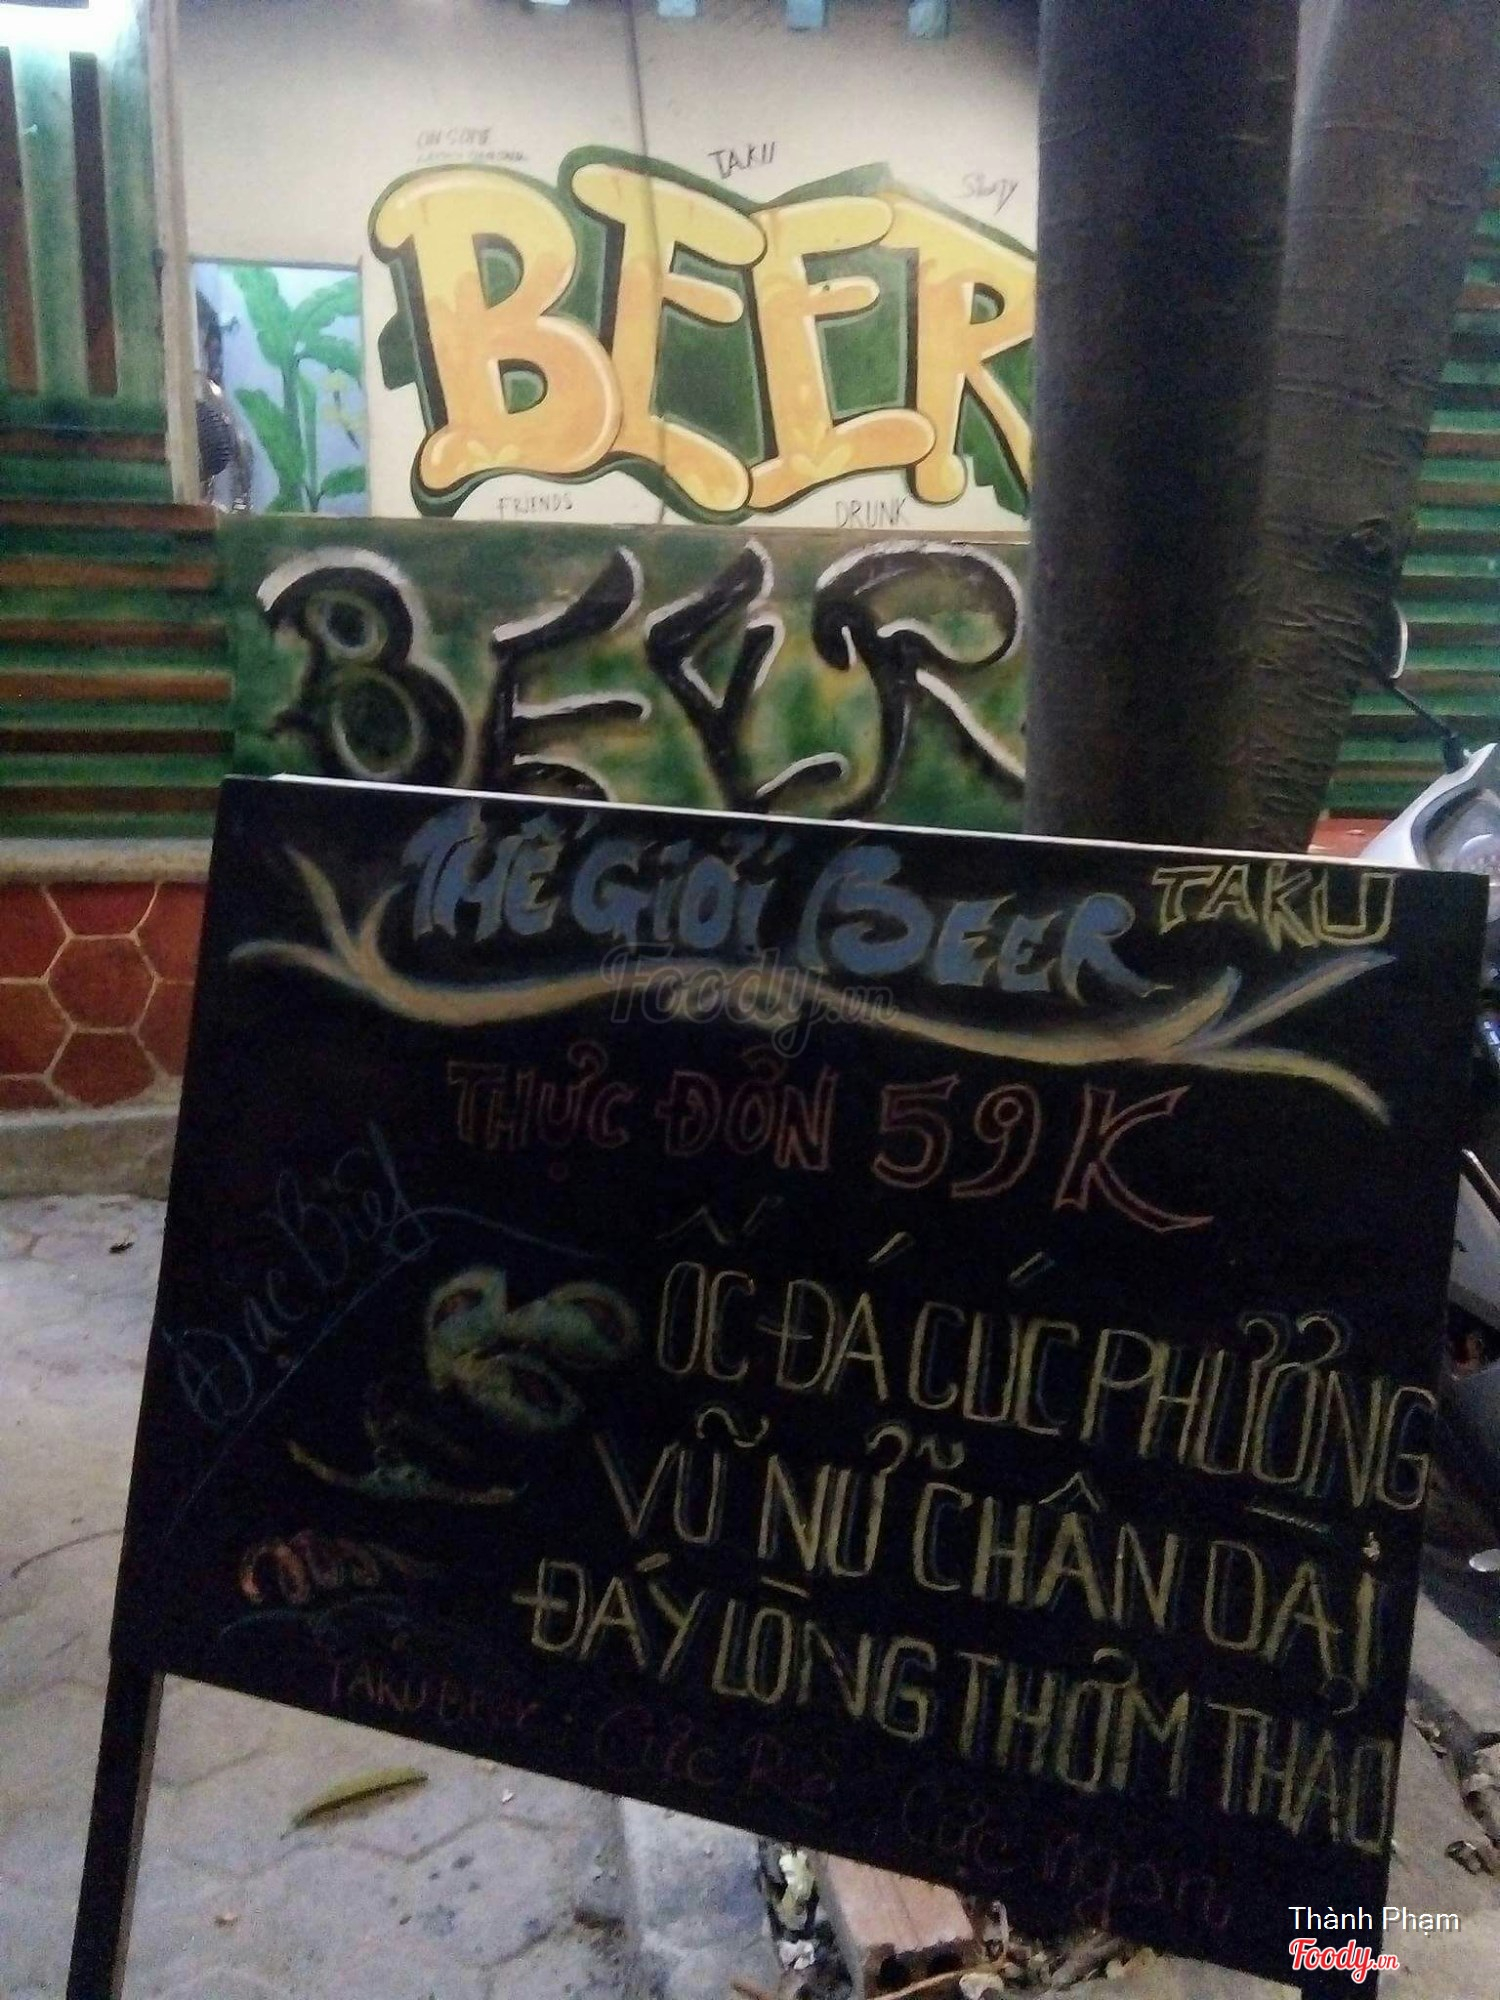 TAKU
BEER
FRIENDS
DRUNK
BEER
THẾ GIỚI BEER TAKU
Foody.vn
THỰC ĐƠN 59K
Đặc Biệt
ỐC ĐÁ CÚC PHƯƠNG
VŨ NỮ CHÂN DÀI
ĐÁY LÒNG THƠM THẢO
TAKU BEER - Cực Rẻ Cực Ngon
Thành Phạm
Foody.vn